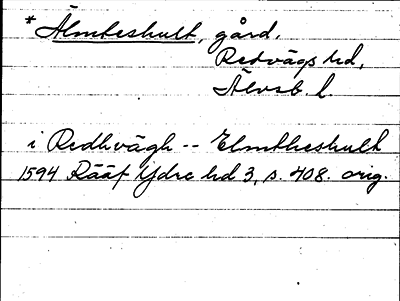 *Älmteshult, gård,
Redvägs hd,
Älvsb. l.
i Redhvägh -- Elmtheshult
1594 Rääf Ydre hd 3, s. 408. orig.